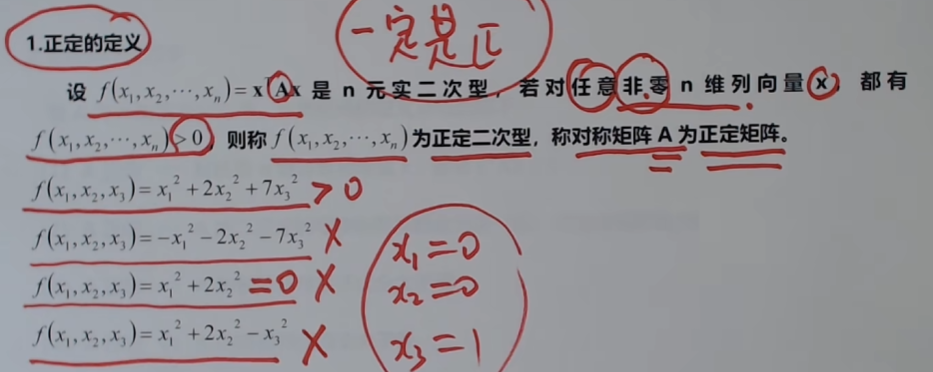 一定是正
1.正定的定义
设 f(x₁,x₂,⋯,xₙ)=xᵀAx 是 n 元实二次型，若对任意非零 n 维列向量 x，都有
f(x₁,x₂,⋯,xₙ)>0，则称 f(x₁,x₂,⋯,xₙ) 为正定二次型，称对称矩阵 A 为正定矩阵。
f(x₁,x₂,x₃)=x₁²+2x₂²+7x₃² >0
f(x₁,x₂,x₃)=-x₁²-2x₂²-7x₃² ×
f(x₁,x₂,x₃)=x₁²+2x₂² =0 ×
f(x₁,x₂,x₃)=x₁²+2x₂²-x₃² ×
x₁=0
x₂=0
x₃=1